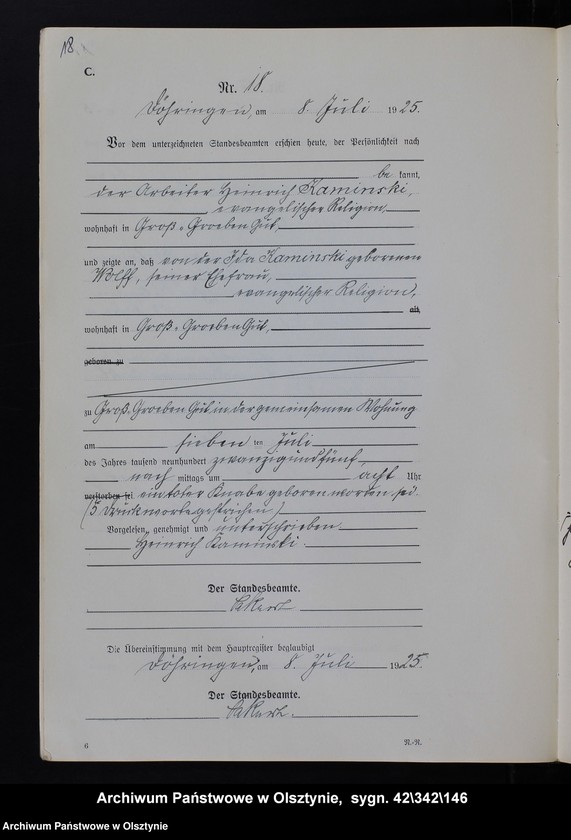 18.
C.
Nr. 18.
Döhringen, am 8. Juli 1925.
Vor dem unterzeichneten Standesbeamten erschien heute, der Persönlichkeit nach
be kannt,
der Arbeiter Heinrich Kaminski,
evangelischer Religion
wohnhaft in Groß-Groeben Gut,
und zeigte an, daß von der Ida Kaminski geborenen
Wolff, seiner Ehefrau,
evangelischer Religion,
alt,
wohnhaft in Groß-Groeben Gut,
geboren zu
zu Groß-Groeben Gut in der gemeinsamen Wohnung
am sieben ten Juli
des Jahres tausend neunhundert zwanzigundfünf
nach mittags um acht Uhr
verstorben sei ein toter Knabe geboren worden sei.
(5 Druckworte gestrichen)
Vorgelesen, genehmigt und unterschrieben
Heinrich Kaminski.
Der Standesbeamte.
Die Übereinstimmung mit dem Hauptregister beglaubigt
Döhringen, am 8. Juli 1925.
Der Standesbeamte.
6
N.-R.
Archiwum Państwowe w Olsztynie, sygn. 42\342\146
Archiwum Państwowe w Olsztynie